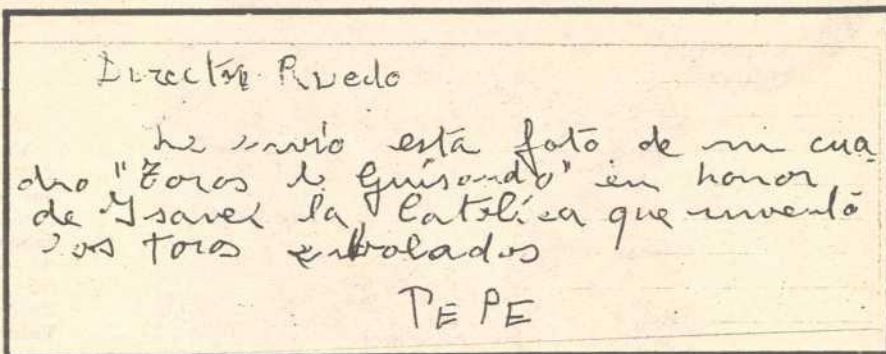 Director Ruedo
Le envio esta foto de mi cua
dro "Toros de Guisando" en honor
de Ysavel la Católica que inventó
los toros embolados
PEPE